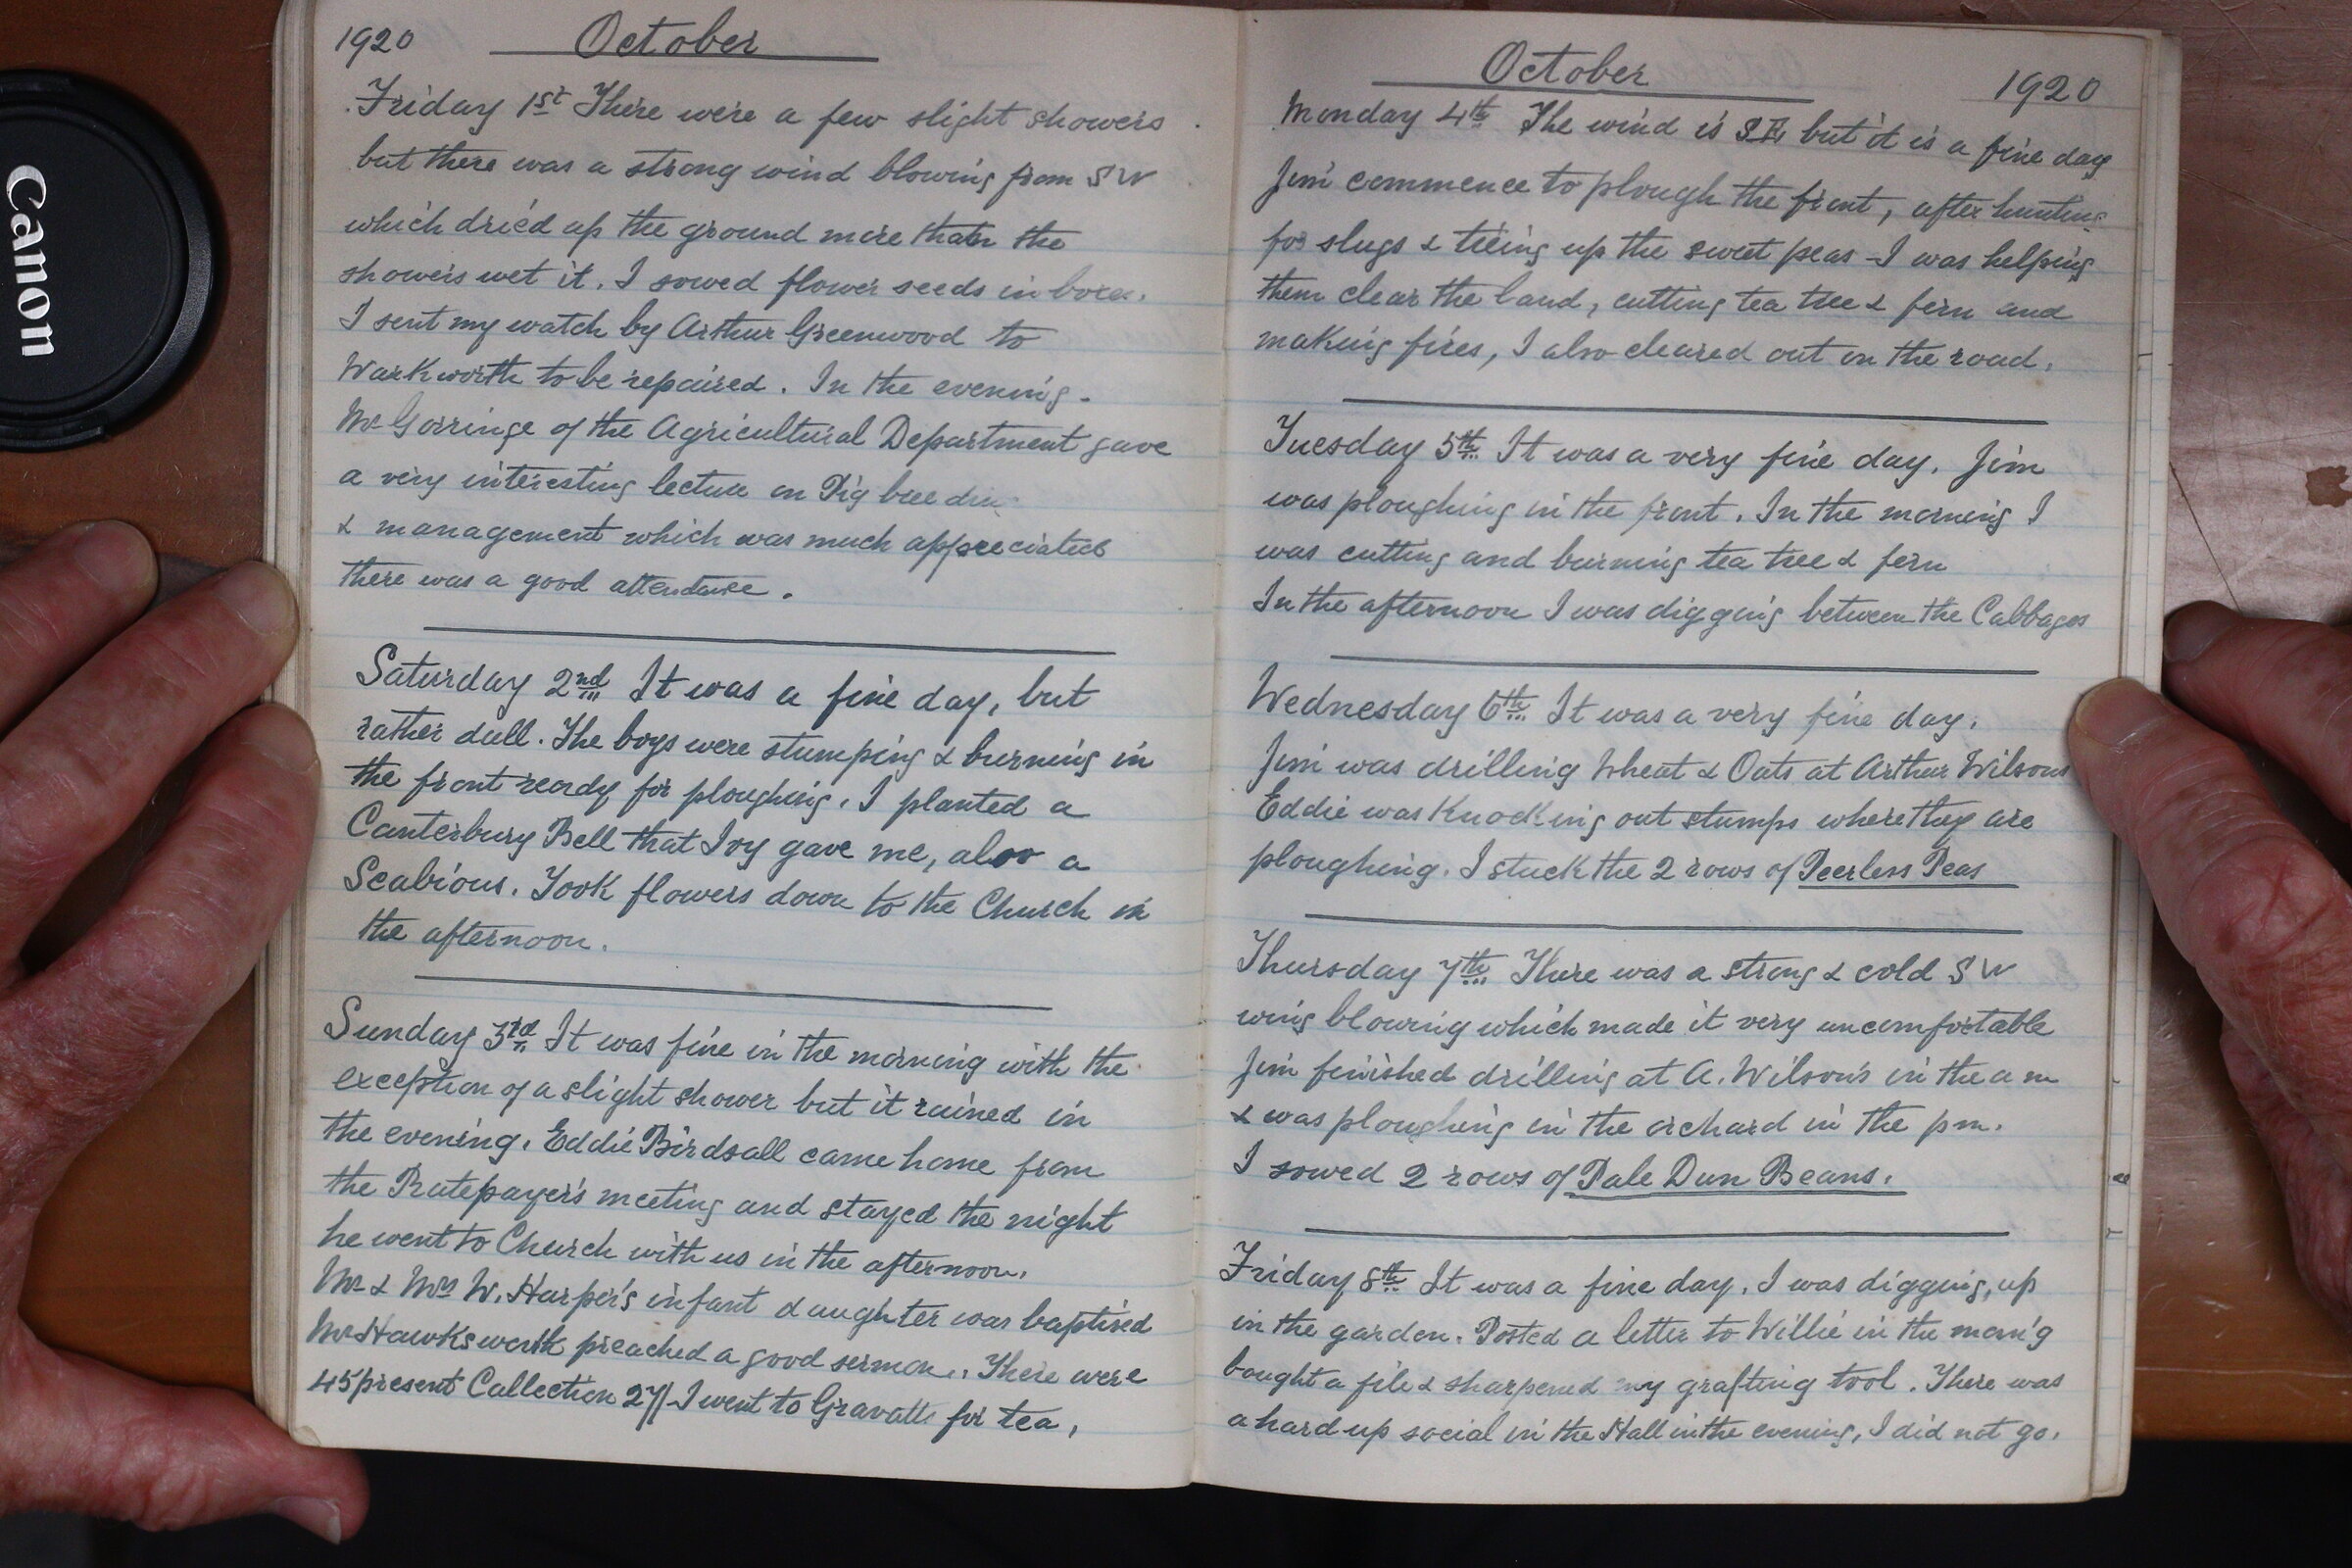 Canon
1920 October
Friday 1st There were a few slight showers
but there was a strong wind blowing from SW
which dried up the ground more than the
showers wet it. I sowed flower seeds in boxes.
I sent my watch by Arthur Greenwood to
Warkworth to be repaired. In the evening
Mr Gorringe of the Agricultural Department gave
a very interesting lecture on Pig breeding
& management which was much appreciated
there was a good attendance.
Saturday 2nd It was a fine day, but
rather dull. The boys were stumping & burning in
the front ready for ploughing. I planted a
Canterbury Bell that Ivy gave me, also a
Scabious. Took flowers down to the Church in
the afternoon.
Sunday 3rd It was fine in the morning with the
exception of a slight shower but it rained in
the evening. Eddie Birdsall came home from
the Ratepayer's meeting and stayed the night
he went to Church with us in the afternoon.
Mr & Mrs W. Harper's infant daughter was baptised
Mr Hawksworth preached a good sermon. There were
45 present Collection 27/- I went to Gravatts for tea,
October 1920
Monday 4th The wind is S.E, but it is a fine day
Jim commence to plough the front, after hunting
for slugs & tieing up the sweet peas - I was helping
them clear the land, cutting tea tree & fern and
making fires, I also cleared out on the road.
Tuesday 5th It was a very fine day. Jim
was ploughing in the front. In the morning I
was cutting and burning tea tree & fern
In the afternoon I was digging between the Cabbages
Wednesday 6th It was a very fine day.
Jim was drilling Wheat & Oats at Arthur Wilsons
Eddie was Knocking out stumps where they are
ploughing. I stuck the 2 rows of Peerless Peas
Thursday 7th There was a strong & cold SW
wing blowing which made it very uncomfortable
Jim finished drilling at A. Wilson's in the am
& was ploughing in the orchard in the pm.
I sowed 2 rows of Pale Dun Beans.
Friday 8th It was a fine day. I was digging, up
in the garden. Posted a letter to Willie in the morn'g
bought a file & sharpened my grafting tool. There was
a hard up social in the Hall in the evening, I did not go.